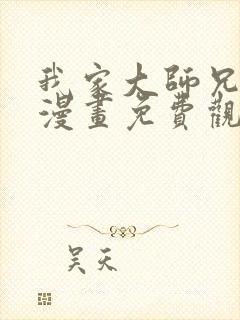 我家大師兄
漫畫免費觀
吴天